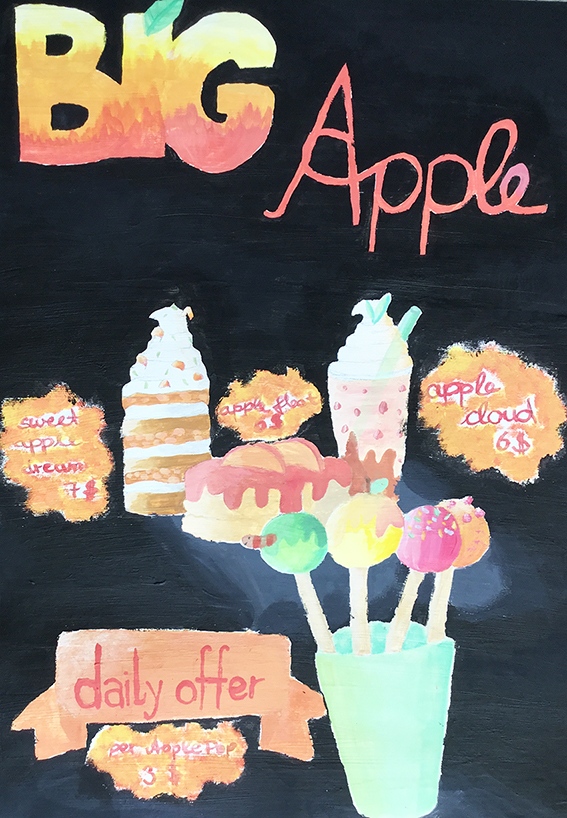 BIG
Apple
sweet
apple
7$
apple float
6$
apple
cloud
6$
daily offer
per Apple Pop
3 $